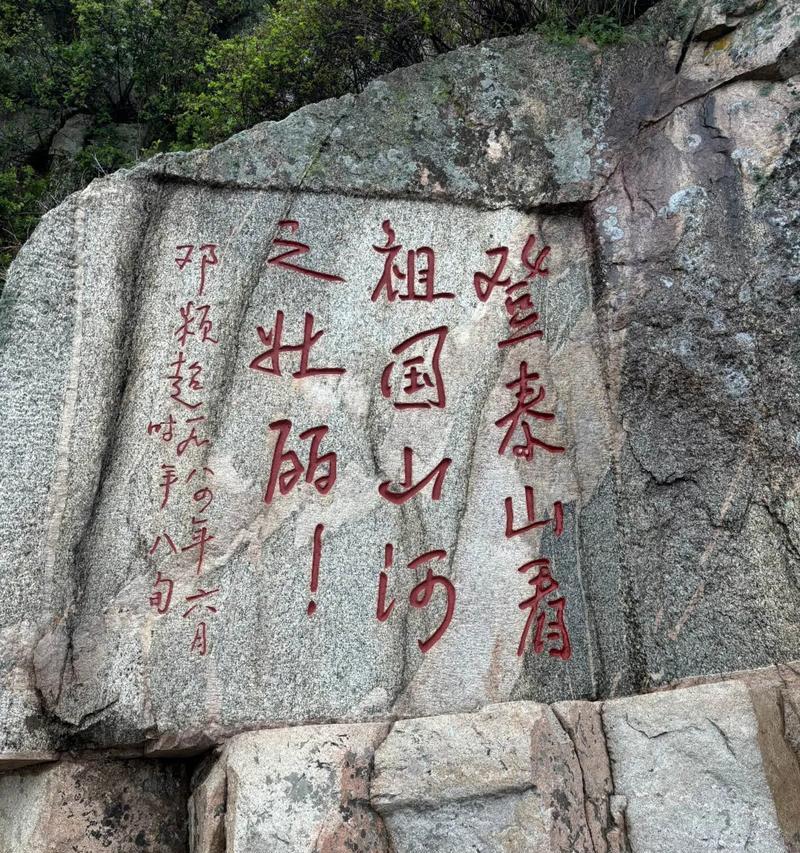 登泰山看
祖国山河
之壮丽!
邓颖超一九八四年六月
时年八旬